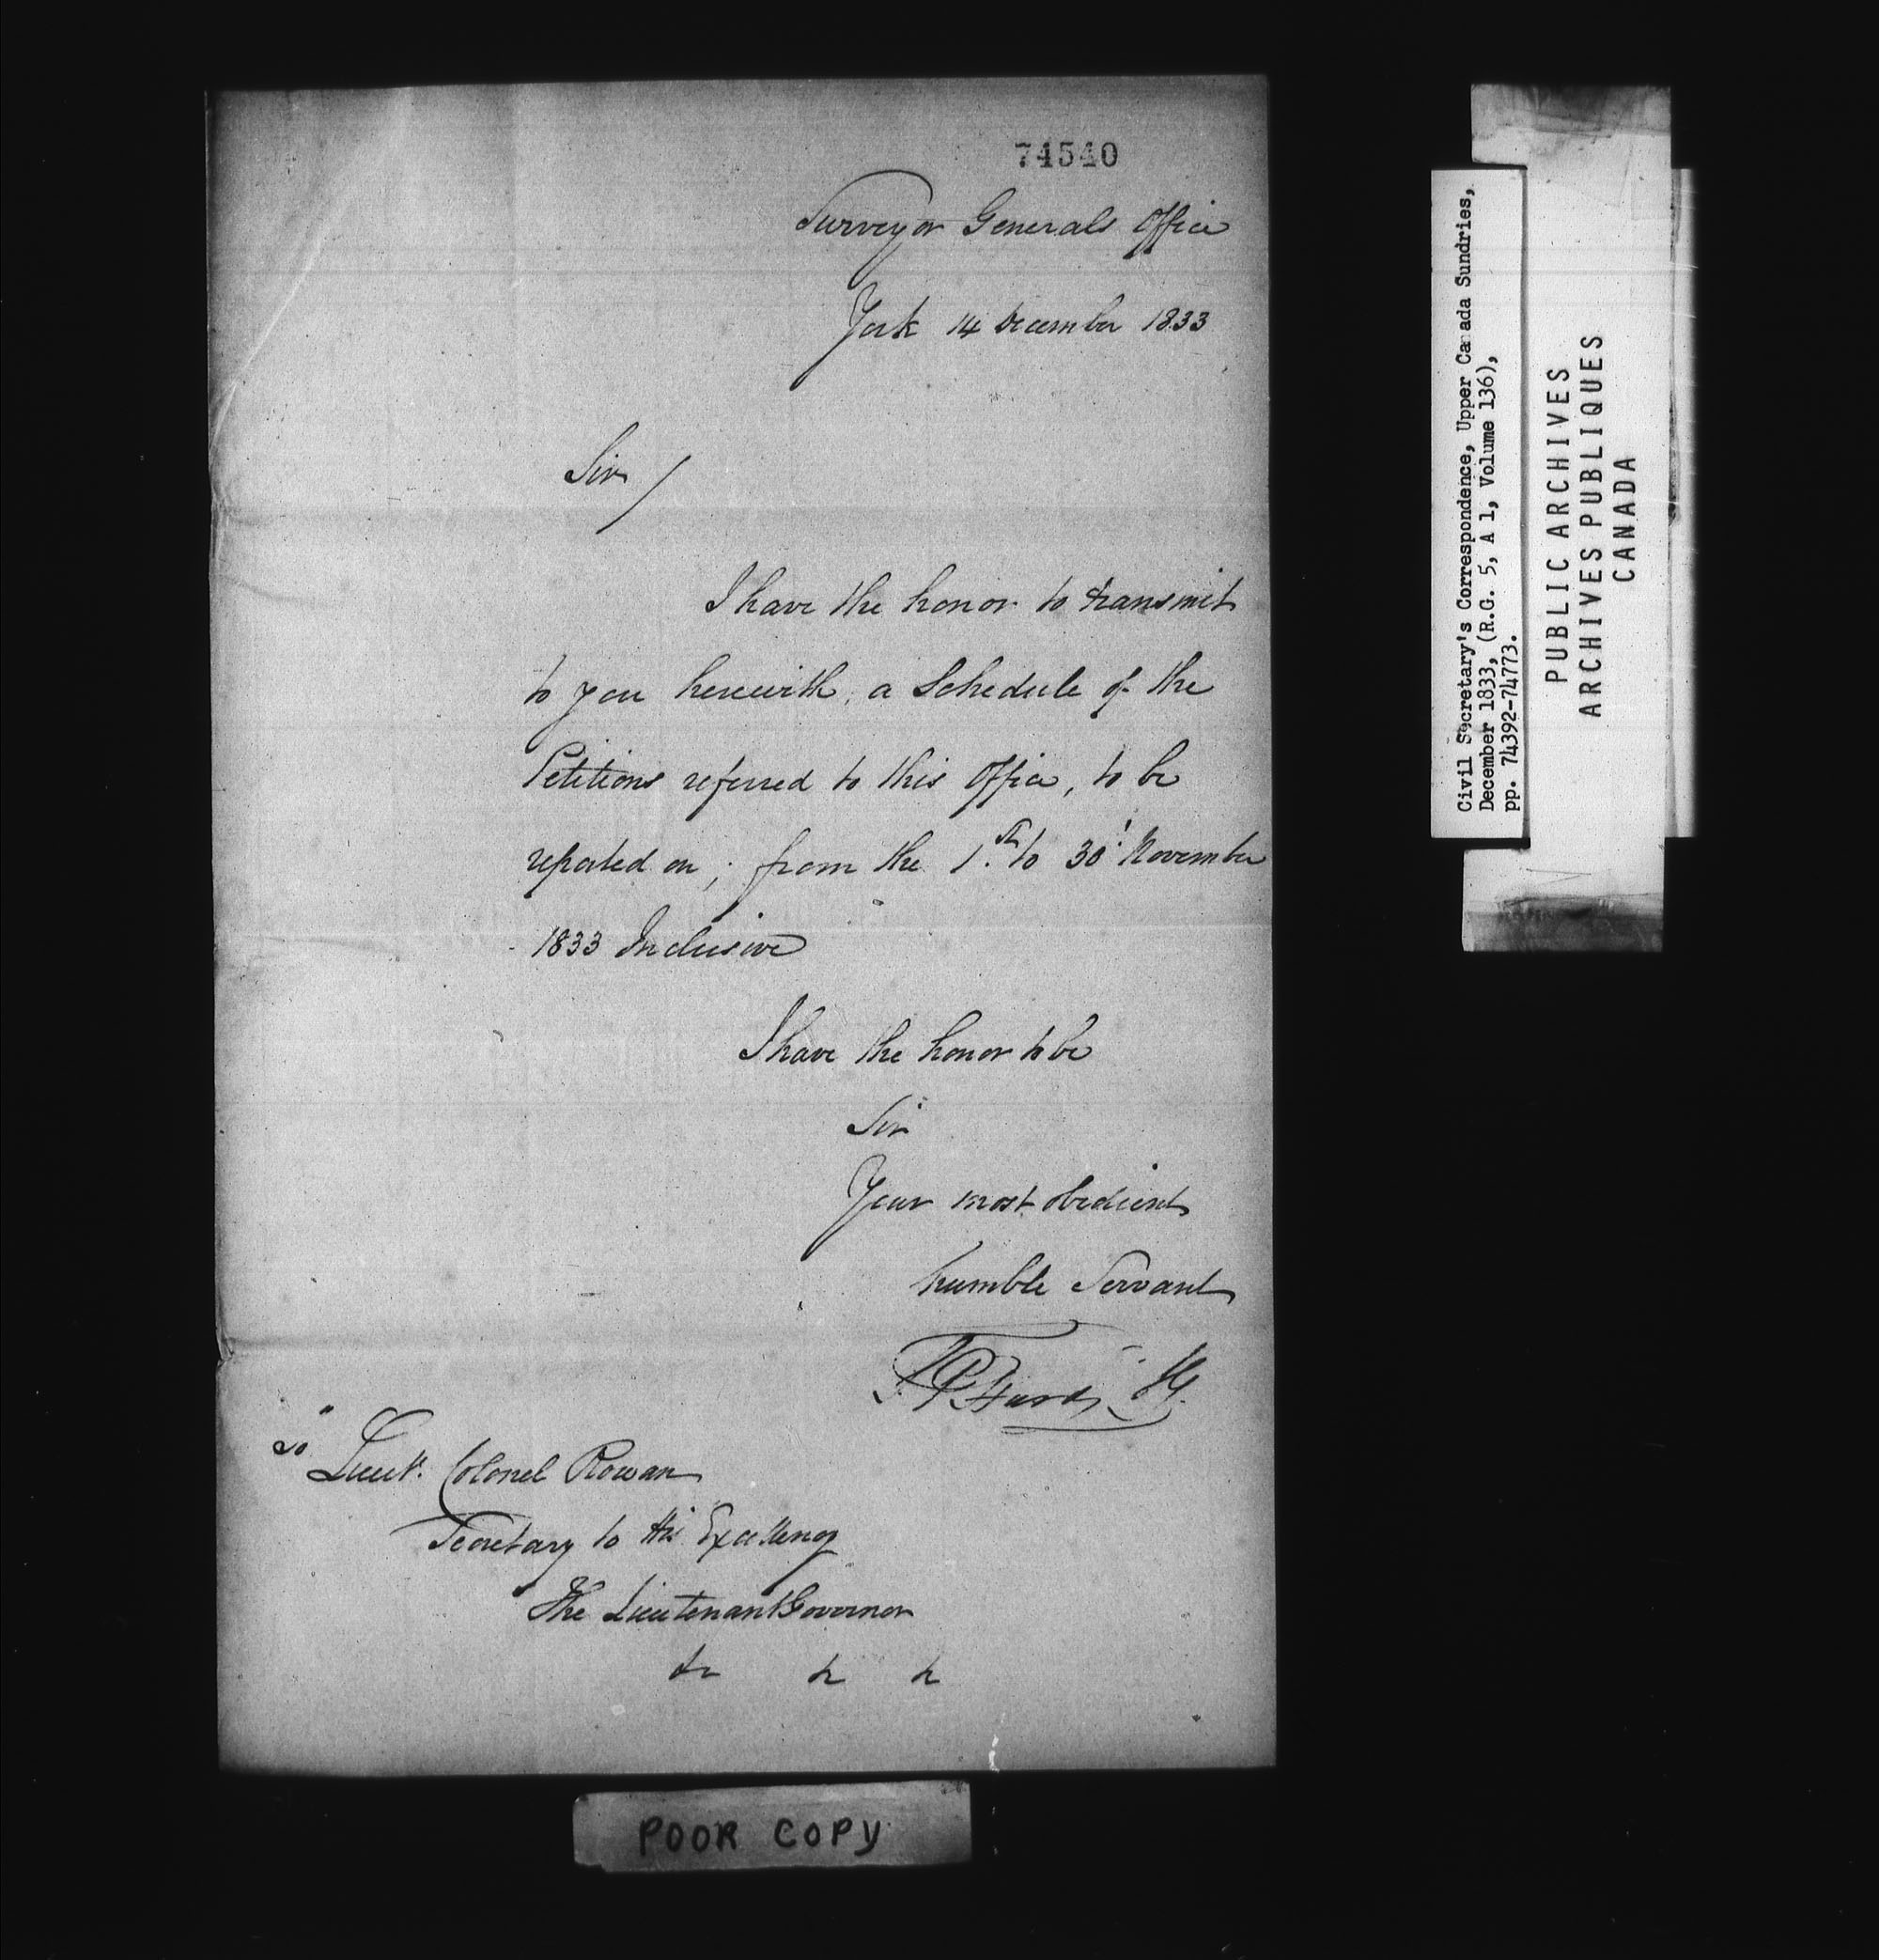 74540
Surveyor Generals Office
York 14 December 1833
Sir /
I have the honor to transmit
to you herewith, a Schedule of the
Petitions referred to this Office, to be
reported on; from the 1st. to 30' November
1833 Inclusive
I have the honor to be
Sir
Your most obedient
humble Servant
To
Lieut. Colonel Rowan
Secretary to His Excellency
The Lieutenant Governor
&c &c &c
POOR COPY
Civil Secretary's Correspondence, Upper Canada Sundries,
December 1833, (R.G. 5, A 1, Volume 136),
pp. 74392-74773.
PUBLIC ARCHIVES
ARCHIVES PUBLIQUES
CANADA